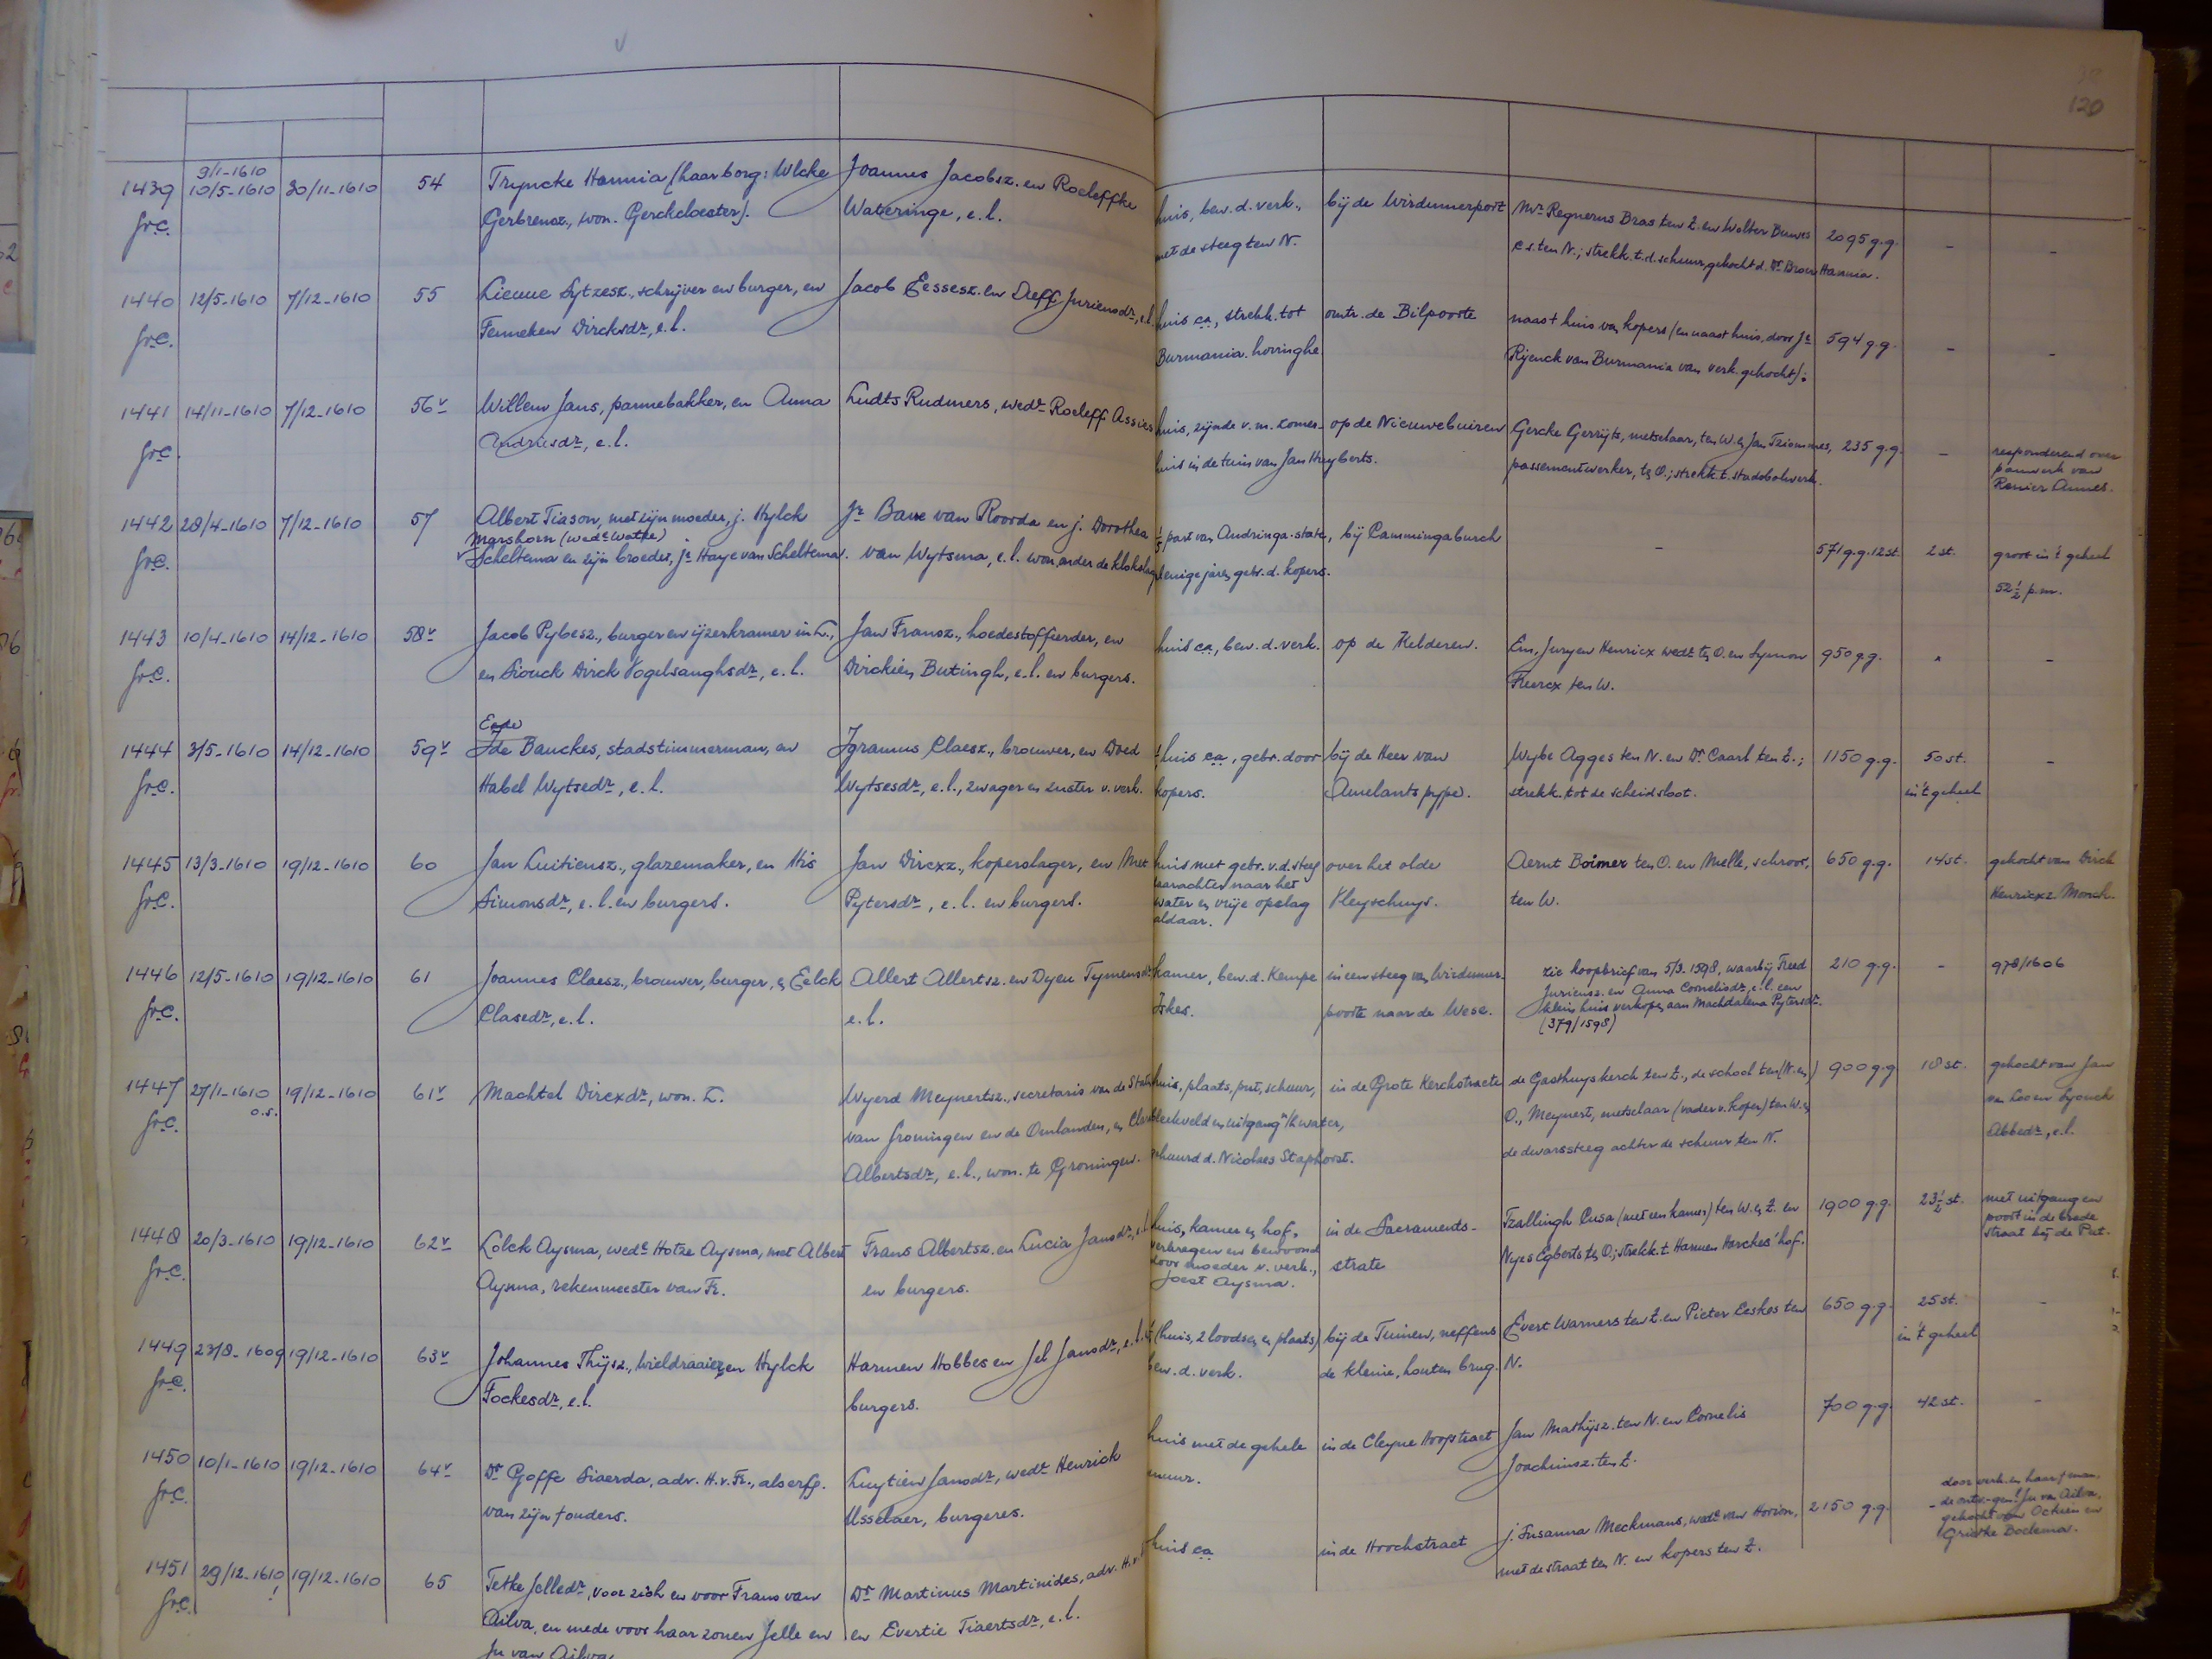 120
1439 9/1-1610 10/5-1610 30/11-1610 54 Tryncke Hannia (haar borg: Wlcke Joannes Jacobsz. en Roeleffke huis, bew. d. verk., bij de Wirdumerport Mr Regnerus Bras ten Z. en Wolter Buwes 2095 g.g. - -
Gerbrensz., won. Gerckeloester). Wateringe, e.l. met de steeg ten N. c.s. ten N.; strekk. t.d. schuur, gekocht d. Dr Brour Hannia.
1440 12/5-1610 7/12-1610 55 Lieuue Sytzesz., schrijver en burger, en Jacob Eessesz. en Deff Juriensdr, e.l. huis ca, strekk. tot omtr. de Bilpoorte naast huis van kopers (en naast huis, door Jr 594 g.g. - -
Fenneken Dircksdr, e.l. Burmania. hovinghe Rijenck van Burmania van verk. gekocht);
1441 14/11-1610 7/12-1610 56v Willem Jans, pannebakker, en Anna Ludts Rudmers, wedr Roeleff Assies huis, zijnde v.m. zomer- op de Nieuwebuiren Gercke Gerryts, metselaar, ten W. en Jan Tziommes, 235 g.g. - responderend over
Andriesdr, e.l. huis in de tuin van Jan Huyberts. passementwerker, ten O.; strekk. t. stadsbolwerk. panwerk van
Renier Annes.
1442 28/4-1610 7/12-1610 57 Albert Tiason, met zijn moeder, j. Hylck Jr Bauke van Roorda en j. Dorothea 1/5 part van Andringa-state, bij Cammingaburch - 571 g.g. 12 st. 2 st. groot in 't geheel
Marshorn (wedr Watke)
Scheltema en zijn broeder, jr Haye van Scheltema. van Wytsma, e.l. won. onder de klokslag enige jaren gebr. d. kopers. 52½ p.m.
1443 10/4-1610 14/12-1610 58v Jacob Pybesz., burger en ijzerkramer in L., Jan Fransz., hoedestoffeerder, en huis ca, bew. d. verk. op de Kelderen. Em, Juryen Henricx wedr ten O. en Symon 950 g.g. - -
en Siouck Dirck Vogelsanghsdr, e.l. Dirckien Butingh, e.l. en burgers. Feercx ten W.
Eede
1444 3/5-1610 14/12-1610 59v Ide Banckes, stadstimmerman, en Igramus Claesz., brouwer, en Doed huis ca, gebr. door bij de Heer van Wybe Agges ten N. en Dr Caarl ten Z.; 1150 g.g. 50 st. -
Habel Wytsedr, e.l. Wytsesdr, e.l., zwager en zuster v. verk. kopers. Amelants pype. strekk. tot de scheidsloot. in 't geheel
1445 13/3-1610 19/12-1610 60 Jan Luitiensz., glazemaker, en His Jan Dircxz., koperslager, en Met huis met gebr. v.d. steeg over het olde Aernt Boimer ten O. en Melle, schroor, 650 g.g. 14 st. gekocht van Dirck
Simonsdr, e.l. en burgers. Pytersdr, e.l. en burgers. daarachter naar het water en vrije opslag aldaar. Vleyschuys. ten W. Henricxz Monck.
1446 12/5-1610 19/12-1610 61 Joannes Claesz., brouwer, burger, en Eelck Allert Allertsz. en Dyeu Tymensdr kamer, bew. d. Kempe in een steeg van Wirdumer- zie koopbrief van 5/3-1598, waarbij Freed 210 g.g. - 978/1606
Clasedr, e.l. e.l. Iskes. poorte naar de Wese. Juriensz. en Anna Cornelisdr, e.l. een
klein huis verkopen aan Machdalena Pytersdr.
(379/1598)
1447 27/1-1610 o.s. 19/12-1610 61v Machtel Dircxdr, won. L. Wyerd Meynertsz., secretaris van de Staten huis, plaats, put, schuur, in de Grote Kerckstraete de Gasthuyskerck ten Z., de school ten (N. en) 900 g.g. 18 st. gekocht van Jan
van Groningen en de Omlanden, en bleekveld en uitgang n/h water, O., Meynert, metselaar (vader v. koper) ten W. en van Loo en Syouck
Albertsdr, e.l., won. te Groningen. gehuurd d. Nicolaes Staphorst. de dwarssteeg achter de schuur ten N. Abbedr, e.l.
1448 20/3-1610 19/12-1610 62v Lolck Aysma, wedr Hotze Aysma, met Albert Frans Albertsz. en Lucia Jansdr, e.l. huis, kamer en hof, in de Sacraments- Tzallingh Cusa (met een kamer) ten W. en Z. en 1900 g.g. 23½ st. met uitgang en
Aysma, rekenmeester van Fr. en burgers. verkregen en bewoond door moeder v. verk., Joest Aysma. strate Nyes Egberts ten O.; strekk. t. Harmen Harckes' hof. poort in de brede
straat bij de Put.
1449 23/8-1609 19/12-1610 63v Johannes Thijsz., wieldraaier, en Hylck Harmen Hobbes en Jel Jansdr, e.l. (huis, 2 loodsen en plaats) bij de Tuinen, neffens Evert Warners ten Z. en Pieter Eeskes ten 650 g.g. 25 st. -
Fockesdr, e.l. burgers. bew. d. verk. de kleine, houten brug. N. in 't geheel
1450 10/1-1610 19/12-1610 64v Dr Goffe Siaerda, adv. H.v.Fr., als erfg. Luytien Jansdr, wedr Henrick huis met de gehele in de Cleyne Hoogstraet Jan Mathijsz. ten N. en Cornelis 700 g.g. 42 st. -
van zijn † ouders. Usselaer, burgeres. muur. Joachimsz. ten Z.
1451 29/12-1610 ! 19/12-1610 65 Tetke Jelledr, voor zich en voor Frans van Dr Martinus Martinides, adv. H.v. huis ca in de Hoochstraet j. Susanna Meckmans, wedr van Horion, 2150 g.g. - door verk. en haar † man.
Ailva, en mede voor haar zonen Jelle en en Evertie Tiaertsdr, e.l. met de straat ten N. en kopers ten Z. gekocht van Ockien en
Ju van Ailva Grietke Boelema.